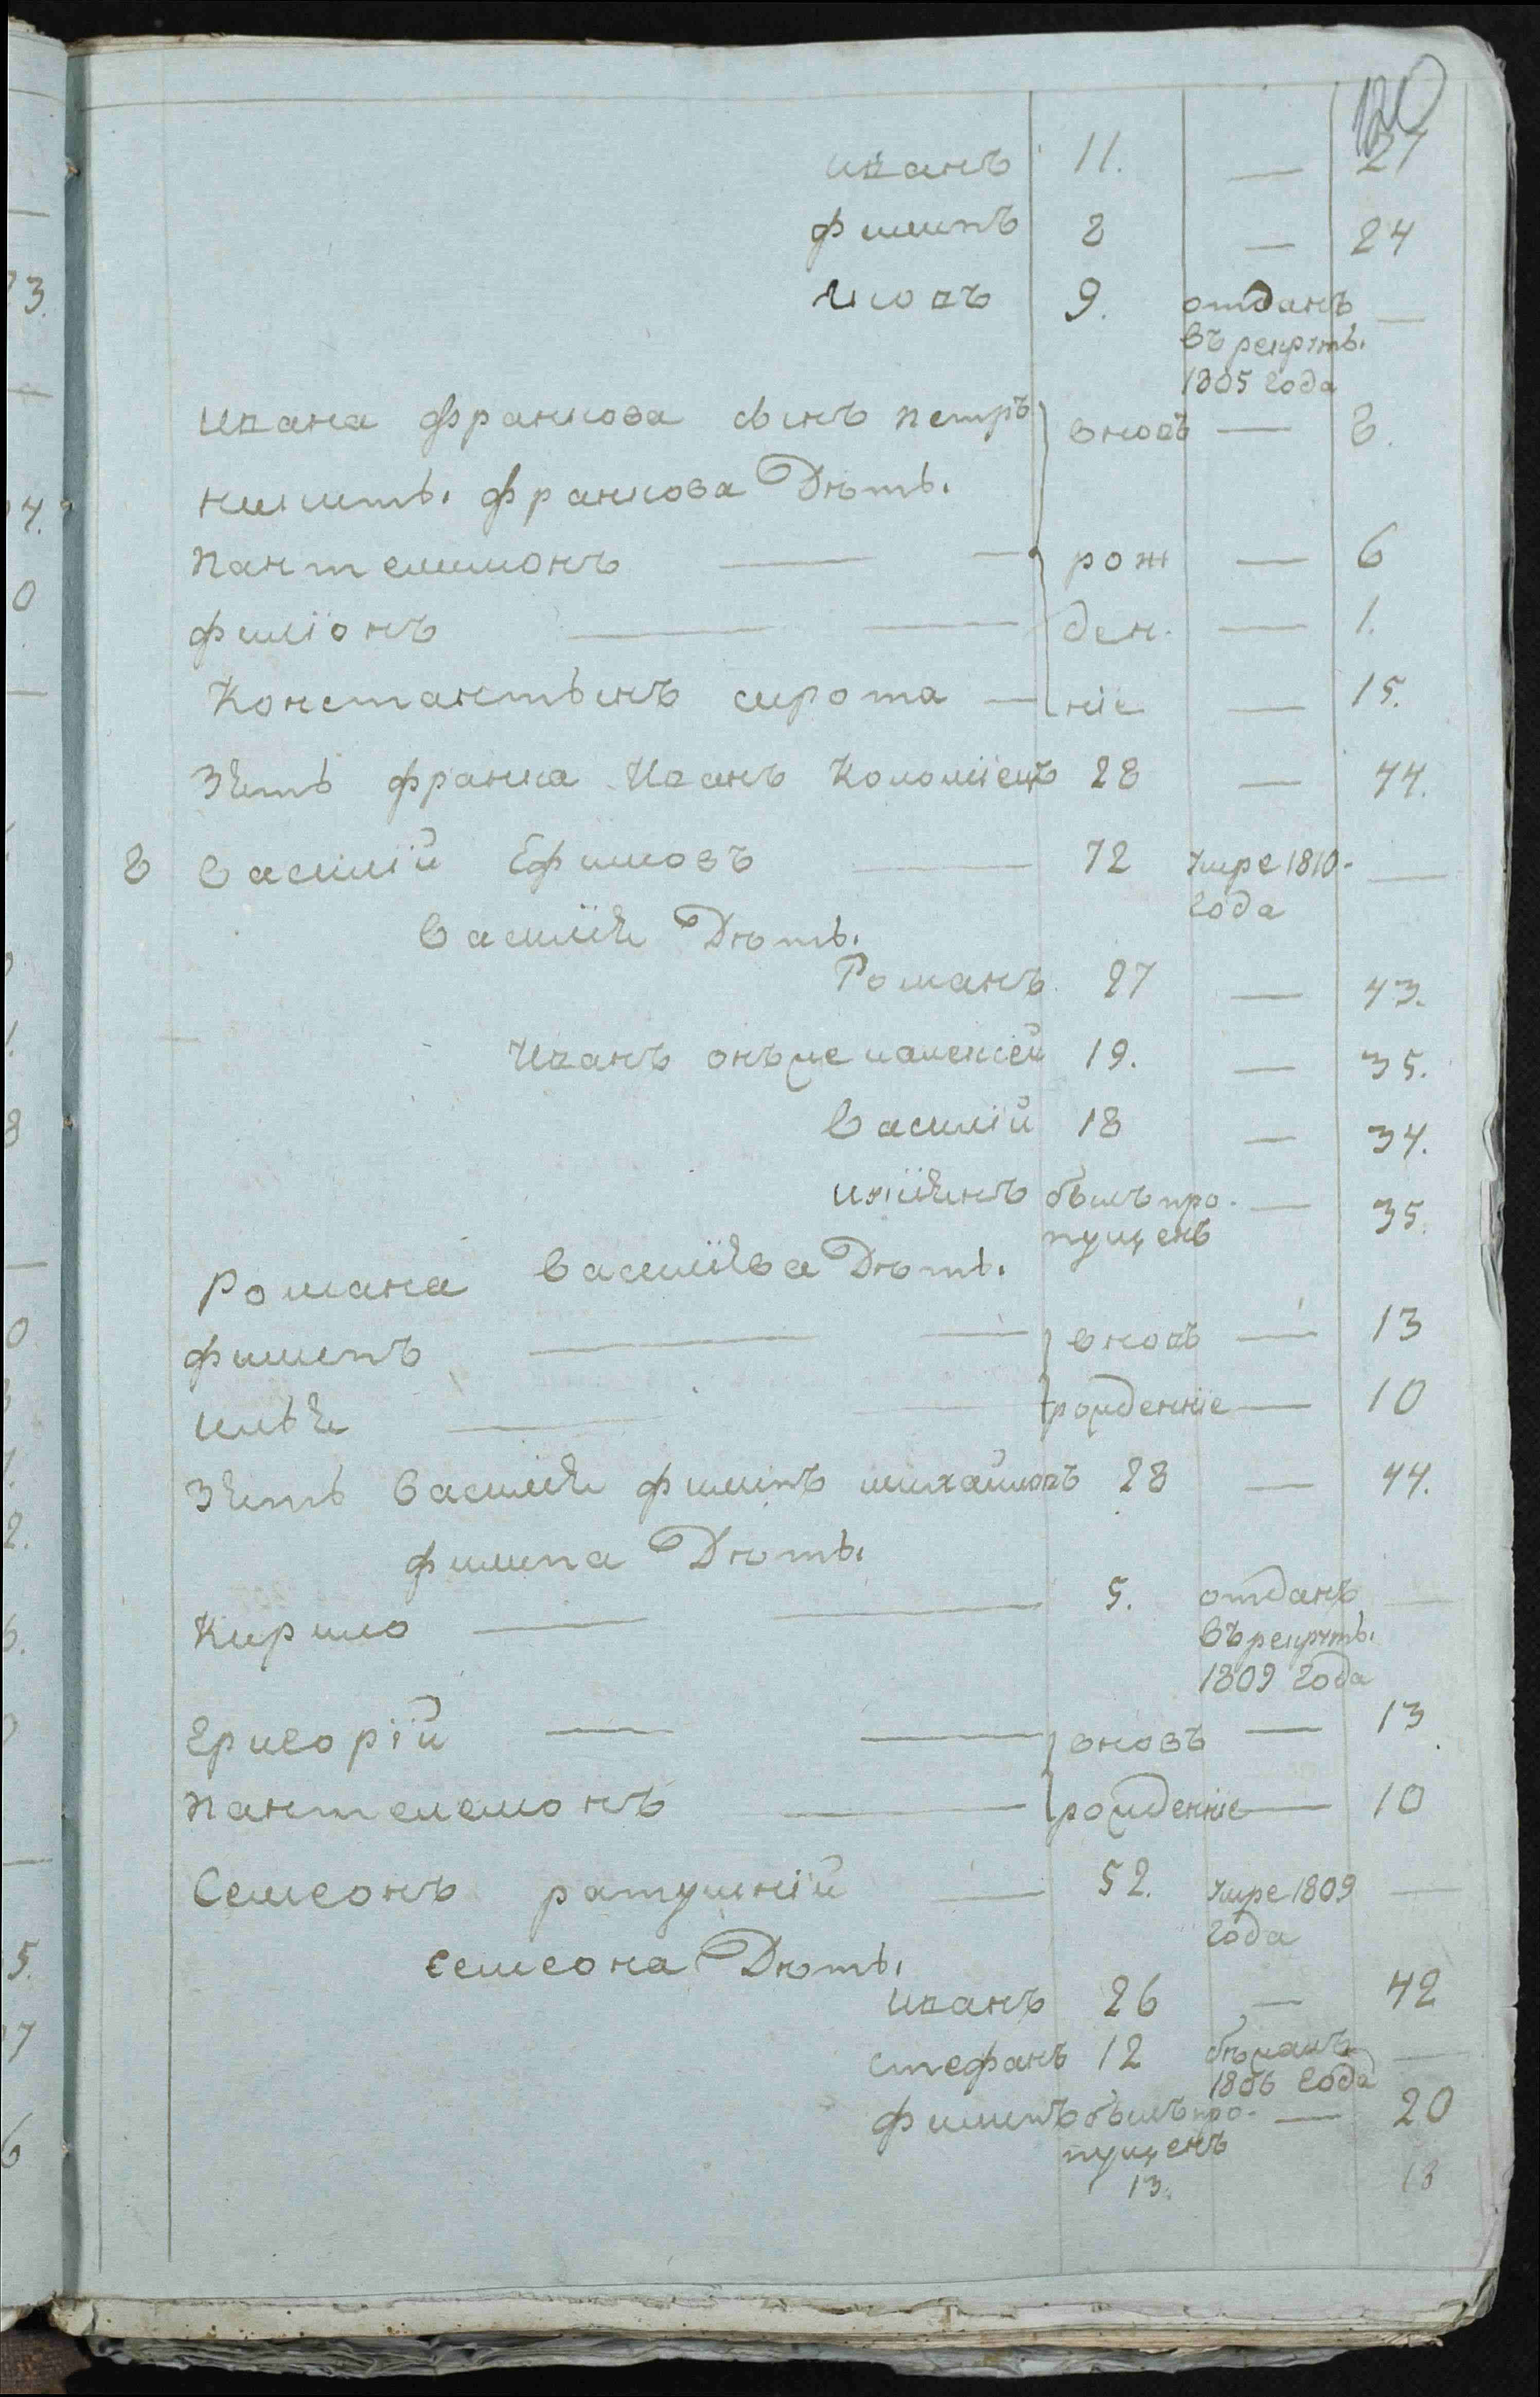 120
Иванъ 11. — 27
Филипъ 8 — 24
Яковъ 9. отданъ —
въ рекруты
1805 года
Ивана Франкова сынъ Петръ вновь — 8.
Никиты Франкова Дѣты
Пантелимонъ — — рож — 6
Филіонъ — — ден. — 1.
Константынъ сирота — ніе — 15.
Зять Франка Иванъ Коломіецъ 28 — 44.
8 Василій Ефимовъ — 72 Умре 1810- —
года
Василія Дѣты
Романъ 27 — 43.
Иванъ онъ же Алексѣй 19. — 35.
Василій 18 — 34.
былъ про- — 35.
пущенъ
Романа Василіева Дѣты
Филипъ — — вновь — 13
Илья — — рожденніе — 10
Зять Василія Филипъ Михайловъ 28 — 44.
Филипа Дѣты
Кирило — — 5. отданъ —
въ рекруты
1809 года
Григорій — — вновъ — 13
Пантелемонъ — рожденніе — 10
Семеонъ Ратушній — 52. Умре 1809 —
года
Семеона Дѣты
Иванъ 26 — 42
Стефанъ 12 бѣжалъ —
1806 года
Филипъ былъ про- — 20
пущенъ
13. 18